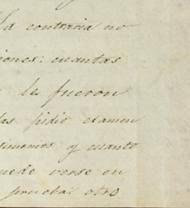 La contraria no
iones: cuantas
le fueron
las pidio examen
timonios y cuanto
uede verse en
prueba: otro